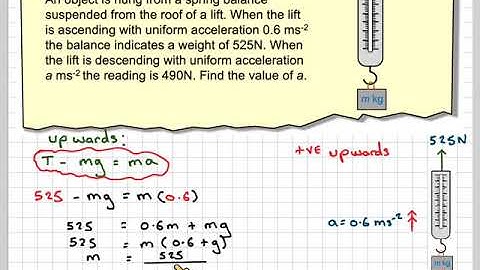 An object is hung from a spring balance
suspended from the roof of a lift. When the lift
is ascending with uniform acceleration 0.6 ms⁻²
the balance indicates a weight of 525N. When
the lift is descending with uniform acceleration
a ms⁻² the reading is 490N. Find the value of a.
m kg
upwards:
T - mg = ma
525 - mg = m(0.6)
525 = 0.6m + mg
525 = m(0.6+g)
m = 525
+ve upwards
525N
a=0.6ms⁻²
m kg